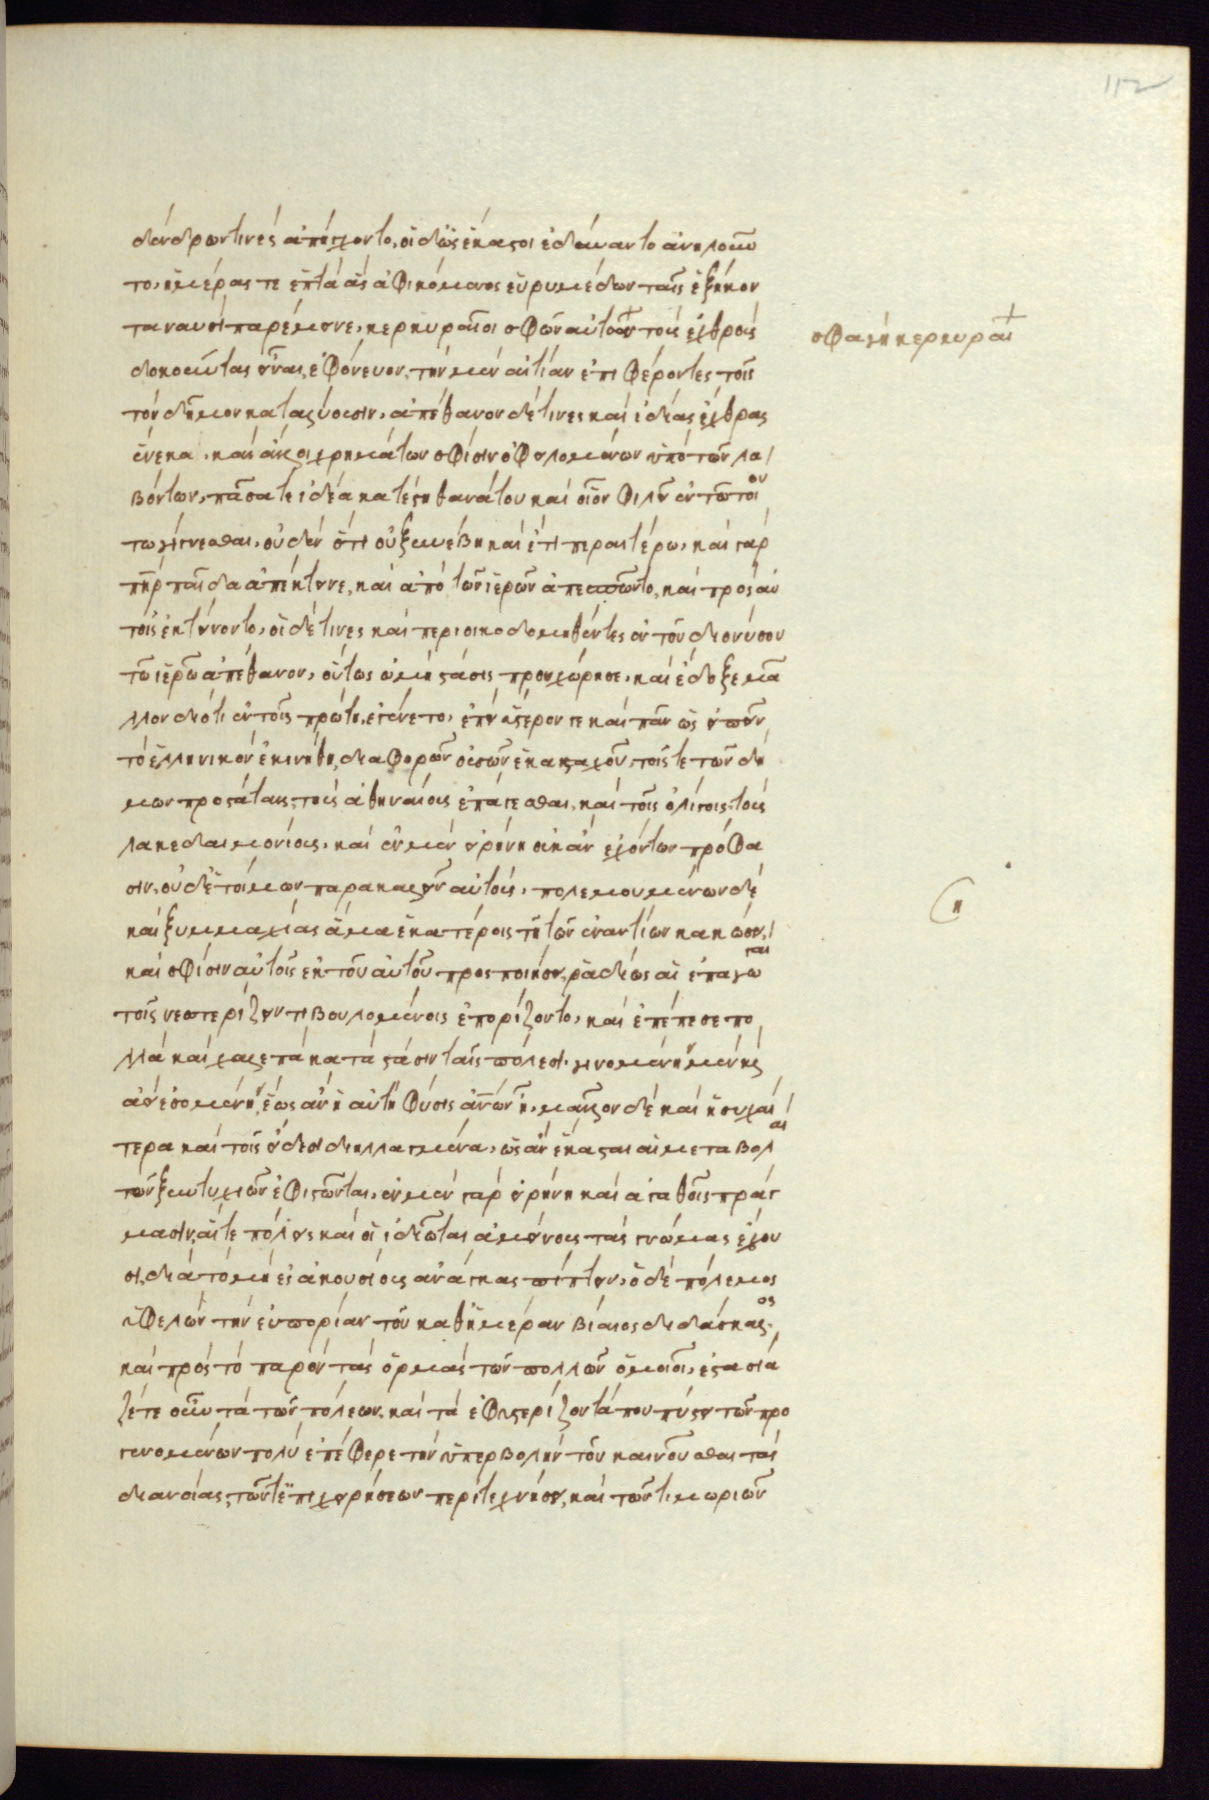 112
δένδρων τινὲς ἀπήγχοντο, οἱ δ' ὡς ἕκαστοι ἐδύναντο ἀνηλοῦν
το, ἡμέρας τε ἑπτὰ ἃς ἀφικόμενος εὐρυμέδων ταῖς ἑξήκον
τα ναυσὶ παρέμεινε, κερκυραῖοι σφῶν αὐτῶν τοὺς ἐχθροὺς
δοκοῦντας εἶναι, ἐφόνευον, τὴν μὲν αἰτίαν ἐπιφέροντες τοῖς
τὸν δῆμον καταλύουσιν, ἀπέθανον δέ τινες καὶ ἰδίας ἔχθρας
ἕνεκα, καὶ ἄλλοι χρημάτων σφίσιν ὀφειλομένων ὑπὸ τῶν λα
βόντων, πᾶσά τε ἰδέα κατέστη θανάτου καὶ οἷον φιλεῖ ἐν τῶ τοιού
τω γίγνεσθαι, οὐδὲν ὅτι οὐ ξυνέβη καὶ ἔτι περαιτέρω, καὶ γὰρ
πατὴρ παῖδα ἀπέκτεινε, καὶ ἀπὸ τῶν ἱερῶν ἀπεσπῶντο, καὶ πρὸς αὐ
τοῖς ἐκτείνοντο, οἱ δέ τινες καὶ περιοικοδομηθέντες ἐν τοῦ διονύσου
τῶ ἱερῶ ἀπέθανον, οὕτως ὠμὴ στάσις προυχώρησε, καὶ ἔδοξε μᾶ
λλον διότι ἐν τοῖς πρώτη ἐγένετο, ἐπεὶ ὕστερόν γε καὶ πᾶν ὡς εἰπεῖν
τὸ ἑλληνικὸν ἐκινήθη, διαφορῶν οὐσῶν ἑκασταχοῦ, τοῖς τε τῶν δή
μων προστάταις, τοὺς ἀθηναίους ἐπάγεσθαι, καὶ τοῖς ὀλίγοις, τοὺς
λακεδαιμονίους, καὶ ἐν μὲν εἰρήνη οὐκ ἂν ἐχόντων πρόφα
σιν, οὐδ' ἑτοίμων παρακαλεῖν αὐτούς, πολεμουμένων δὲ
καὶ ξυμμαχίας ἅμα ἑκατέροις τῆ τῶν ἐναντίων κακώσει,
καὶ σφίσιν αὐτοῖς ἐκ τοῦ αὐτοῦ προσποιήσει, ῥαδίως αἱ ἐπαγωγαὶ
τοῖς νεωτερίζειν τι βουλομένοις ἐπορίζοντο, καὶ ἐπέπεσε πο
λλὰ καὶ χαλεπὰ κατὰ στάσιν ταῖς πόλεσι, γινόμενα μὲν καὶ
ἀεὶ ἐσόμενα, ἕως ἂν ἡ αὐτὴ φύσις ἀνθρώπων ἦ, μᾶλλον δὲ καὶ ἡσυχαί
τερα καὶ τοῖς εἴδεσι διηλλαγμένα, ὡς ἂν ἕκασται αἱ μεταβολαὶ
τῶν ξυντυχιῶν ἐφιστῶνται, ἐν μὲν γὰρ εἰρήνη καὶ ἀγαθοῖς πράγ
μασιν, αἵ τε πόλεις καὶ οἱ ἰδιῶται ἀμείνους τὰς γνώμας ἔχου
σι, διὰ τὸ μὴ ἐς ἀκουσίους ἀνάγκας πίπτειν, ὁ δὲ πόλεμος
ὑφελὼν τὴν εὐπορίαν τοῦ καθ' ἡμέραν βίαιος διδάσκαλος,
καὶ πρὸς τὸ παρὸν τὰς ὀργὰς τῶν πολλῶν ὁμοιοῖ, ἐστασία
ζέ τε οὖν τὰ τῶν πόλεων, καὶ τὰ ἐφυστερίζοντά που πύστει τῶν προ
γενομένων πολὺ ἐπέφερε τὴν ὑπερβολὴν τοῦ καινοῦσθαι τὰς
διανοίας, τῶν τ' ἐπιχειρήσεων περιτεχνήσει, καὶ τῶν τιμωριῶν
σφαγὴ κερκυραί